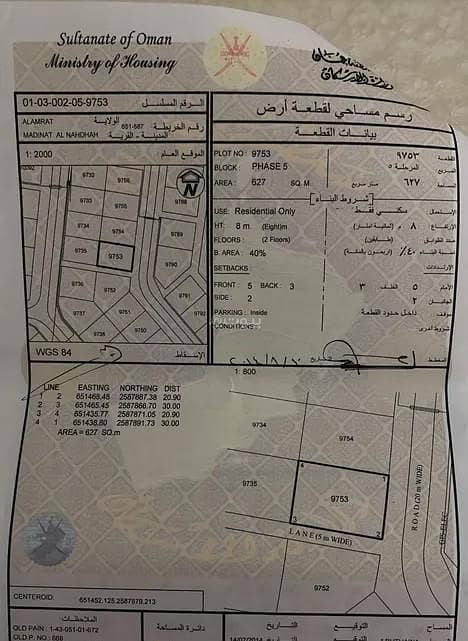 Sultanate of Oman
Ministry of Housing
01-03-002-05-9753 الرقم المسلسل
رسم مساحي لقطعة أرض
ALAMRAT 651-587 الولاية
رقم الخريطة
MADINAT AL NAHDHAH المدينة - القرية
بيانات القطعة
1: 2000 الموقع العام
PLOT NO : 9753 ٩٧٥٣ القطعة
BLOCK : PHASE 5 المرحلة ٥ المربع
AREA : 627 SQ. M متر مربع ٦٢٧
شروط البناء
USE: Residential Only سكني فقط الإستعمال
HT: 8 m. (Eight)m ٨ م. الإرتفاع
FLOORS : (2 Floors) (طابقين) عدد الطوابق
B. AREA : 40% ٤٠٪ (اربعون بالمائة) نسبة البناء
SETBACKS الإرتدادات
FRONT : 5 BACK : 3 ٣ الخلف ٥ الأمام
SIDE : 2 ٢ الجانبين
PARKING : Inside داخل حدود القطعة
CONDITIONS : شروط اخرى
9732
9756
9788
9733
9755
9734
9754
9735
9753
9790
9752
9791
9751
9792
9738
9750
WGS 84
الإسقاط
المخطط
1: 600
LINE EASTING NORTHING DIST
1 2 651468.48 2587887.38 20.90
2 3 651465.45 2587866.70 30.00
3 4 651435.77 2587871.05 20.90
4 1 651438.80 2587891.73 30.00
AREA = 627 SQ.m
9734
9754
9735
4
1
9753
3
2
LANE (5 m WIDE)
ROAD (20 m WIDE)
9752
CENTEROID: 651452.125,2587879.213
الملاحظات:
OLD PAIN : 1-43-051-01-672
OLD P. NO : 668
دائرة المساحة
التاريخ
التوقيع
المساح
14/07/2014